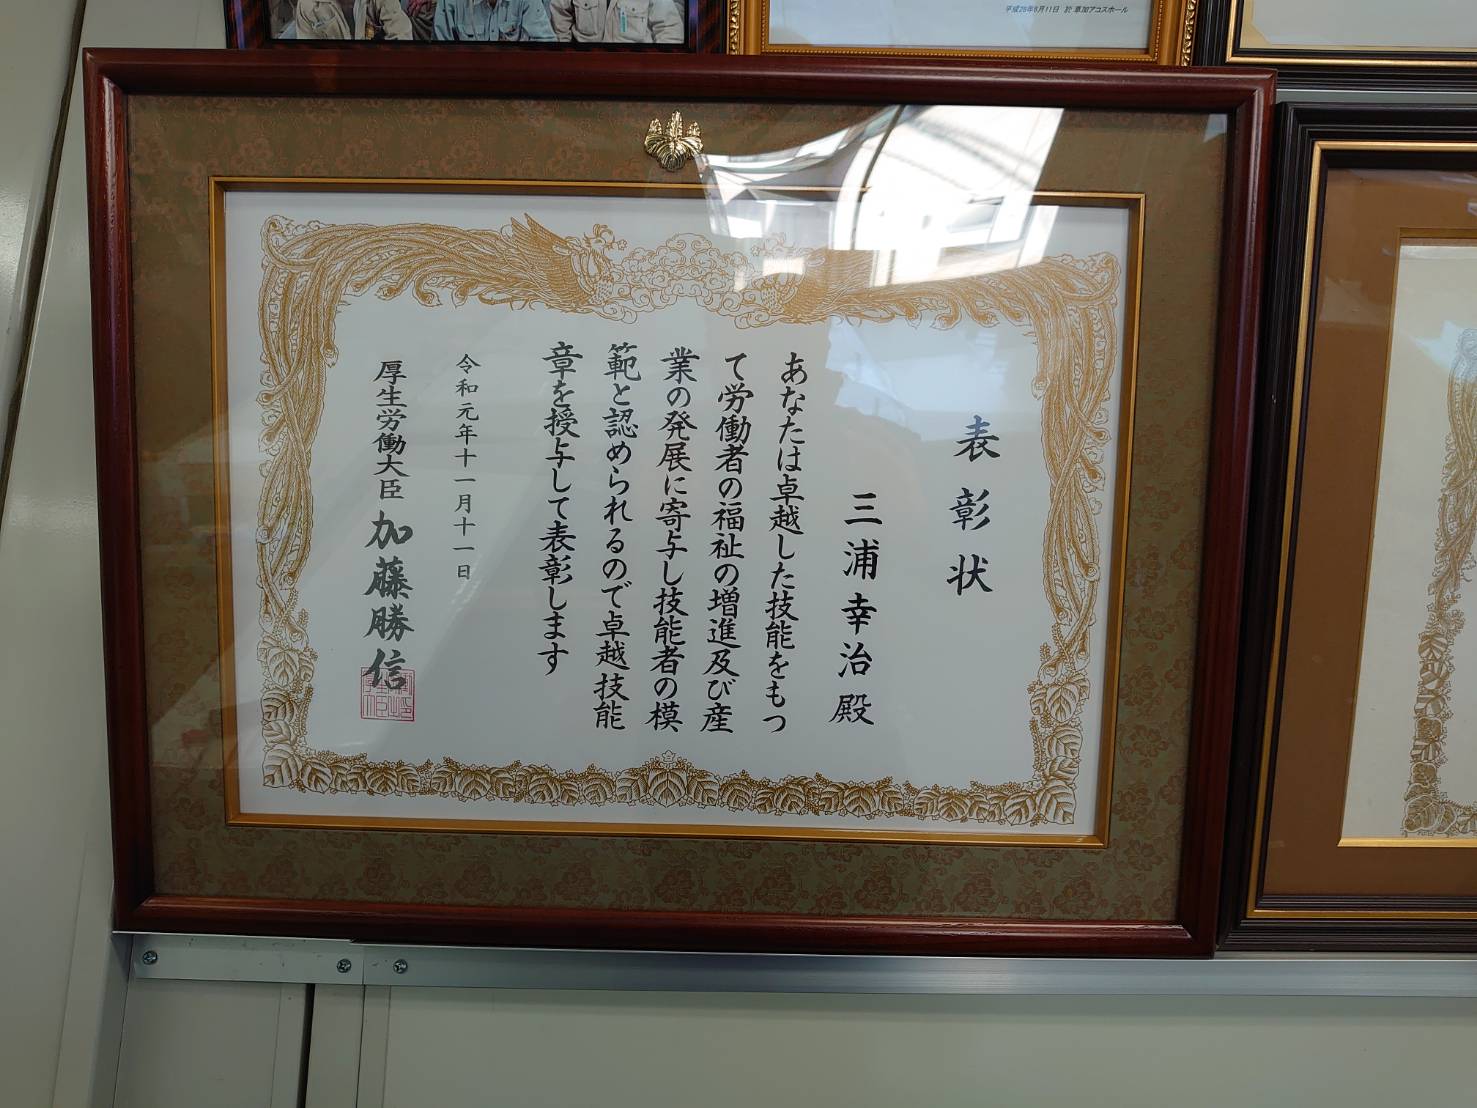 平成28年8月11日 於 草加アコスホール
表彰状
三浦幸治殿
あなたは卓越した技能をもつ
て労働者の福祉の増進及び産
業の発展に寄与し技能者の模
範と認められるので卓越技能
章を授与して表彰します
令和元年十一月十一日
厚生労働大臣 加藤勝信